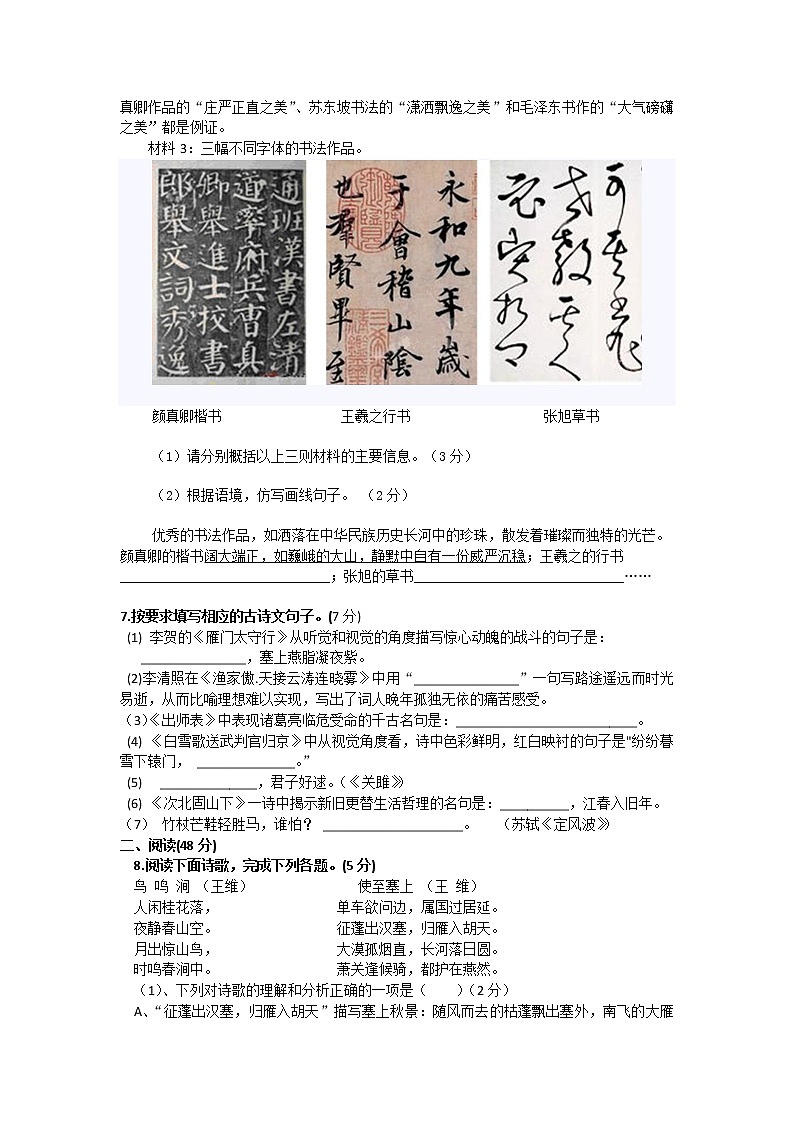 真卿作品的“庄严正直之美”、苏东坡书法的“潇洒飘逸之美”和毛泽东书作的“大气磅礴
之美”都是例证。
材料3：三幅不同字体的书法作品。
通班漢書左清
道寧府兵曹真
卿舉進士校書
郎舉文詞秀逸
永和九年歲
于會稽山陰
也羣賢畢至
颜真卿楷书 王羲之行书 张旭草书
（1）请分别概括以上三则材料的主要信息。（3分）
（2）根据语境，仿写画线句子。（2分）
优秀的书法作品，如洒落在中华民族历史长河中的珍珠，散发着璀璨而独特的光芒。
颜真卿的楷书阔大端正，如巍峨的大山，静默中自有一份威严沉稳；王羲之的行书
______________________________；张旭的草书______________________________……
7.按要求填写相应的古诗文句子。(7分)
(1) 李贺的《雁门太守行》从听觉和视觉的角度描写惊心动魄的战斗的句子是：
_______________，塞上燕脂凝夜紫。
(2)李清照在《渔家傲.天接云涛连晓雾》中用“_______________”一句写路途遥远而时光
易逝，从而比喻理想难以实现，写出了词人晚年孤独无依的痛苦感受。
（3）《出师表》中表现诸葛亮临危受命的千古名句是：__________________________。
(4) 《白雪歌送武判官归京》中从视觉角度看，诗中色彩鲜明，红白映衬的句子是"纷纷暮
雪下辕门， ______________。”
(5) ______________，君子好逑。（《关雎》）
(6) 《次北固山下》一诗中揭示新旧更替生活哲理的名句是：__________，江春入旧年。
（7） 竹杖芒鞋轻胜马，谁怕？ ____________________。 （苏轼《定风波》）
二、阅读(48分)
8.阅读下面诗歌，完成下列各题。(5分)
鸟 鸣 涧 （王维） 使至塞上 （王 维）
人闲桂花落， 单车欲问边，属国过居延。
夜静春山空。 征蓬出汉塞，归雁入胡天。
月出惊山鸟， 大漠孤烟直，长河落日圆。
时鸣春涧中。 萧关逢候骑，都护在燕然。
（1）、下列对诗歌的理解和分析正确的一项是（ ）(2分）
A、“征蓬出汉塞，归雁入胡天”描写塞上秋景：随风而去的枯蓬飘出塞外，南飞的大雁